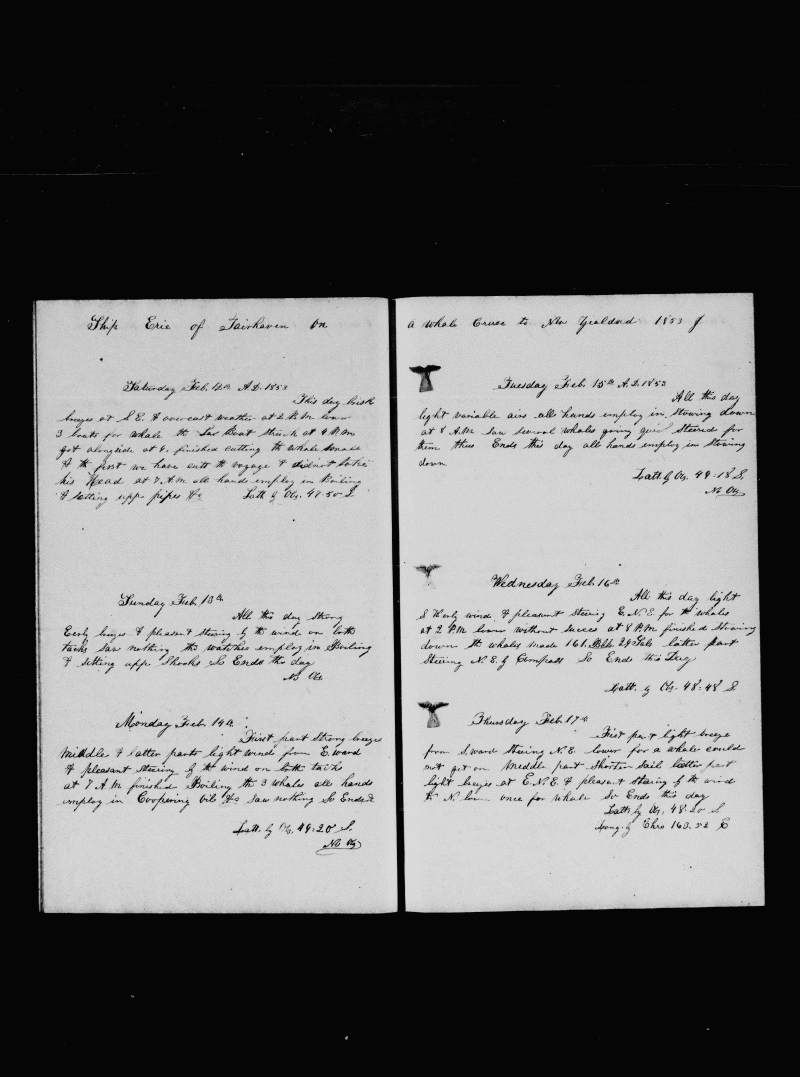 Ship Erie of Fairhaven On
Saturday Feb. 12th A.D. 1853
This day brisk
breezes at S.E. & overcast weather at 2 P.M. lower
3 boats for whale the Lar Boat struck at 4 P.M
got alongside at 6. finished cutting the whale
& the first we have cutt the voyage & did not take
his Head at 7 A.M. all hands employ in Boiling
& setting upp pipes &c Latt. by Obs. 47-50 S.
Sunday Feb. 13th
All this day strong
breezes & pleasant steering by the wind on both
tacks saw nothing the watches employ in Boiling
& setting upp Shooks So Ends this day
No Obs
Monday Feb. 14th.
First part strong breezes
middle & latter parts light winds from E.ward
& pleasant steering by the wind on both tacks
at 7 A M finished Boiling the 3 whales all hands
employ in Coopering Oil &c saw nothing So Ended
Latt. by Obs. 49-20 S.
No Obs
a whale Cruse to New 1853
Tuesday Feb. 15th A.D. 1853
All this day
light variable airs all hands employ in Stowing down
at 8 A.M. saw several whales going Steered for
them thus Ends this day all hands employ in Stowing
down
Latt. by Obs. 49-18 S.
No Obs.
Wednesday Feb. 16th
All this day light
S therly wind & pleasant Steering E.N.E. for the whales
at 2 P.M lower without succes at 8 P.M finished Stowing
down 3 whales made 161. Bbls latter part
Steering N.E. by Compass So Ends this Day
Latt. by Obs. 48-48 S.
Thursday Feb 17th
First part light breeze
from S.ward Steering N.E. lower for a whale could
not get on Middle part Shorten Sail latter part
light breezes at E.N.E. & pleasant Steering by the wind
to N. lower once for whale So Ends this day
Latt. by Obs. 48-20 S
Long. by Chro 163.52 E